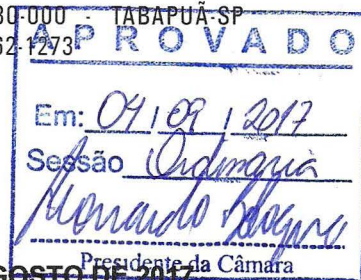 80-000 - TABAPUÃ-SP
62-1273
APROVADO
Em: 04 / 09 / 2017
Sessão Ordinária
Presidente da Câmara
GOSTO DE 2017